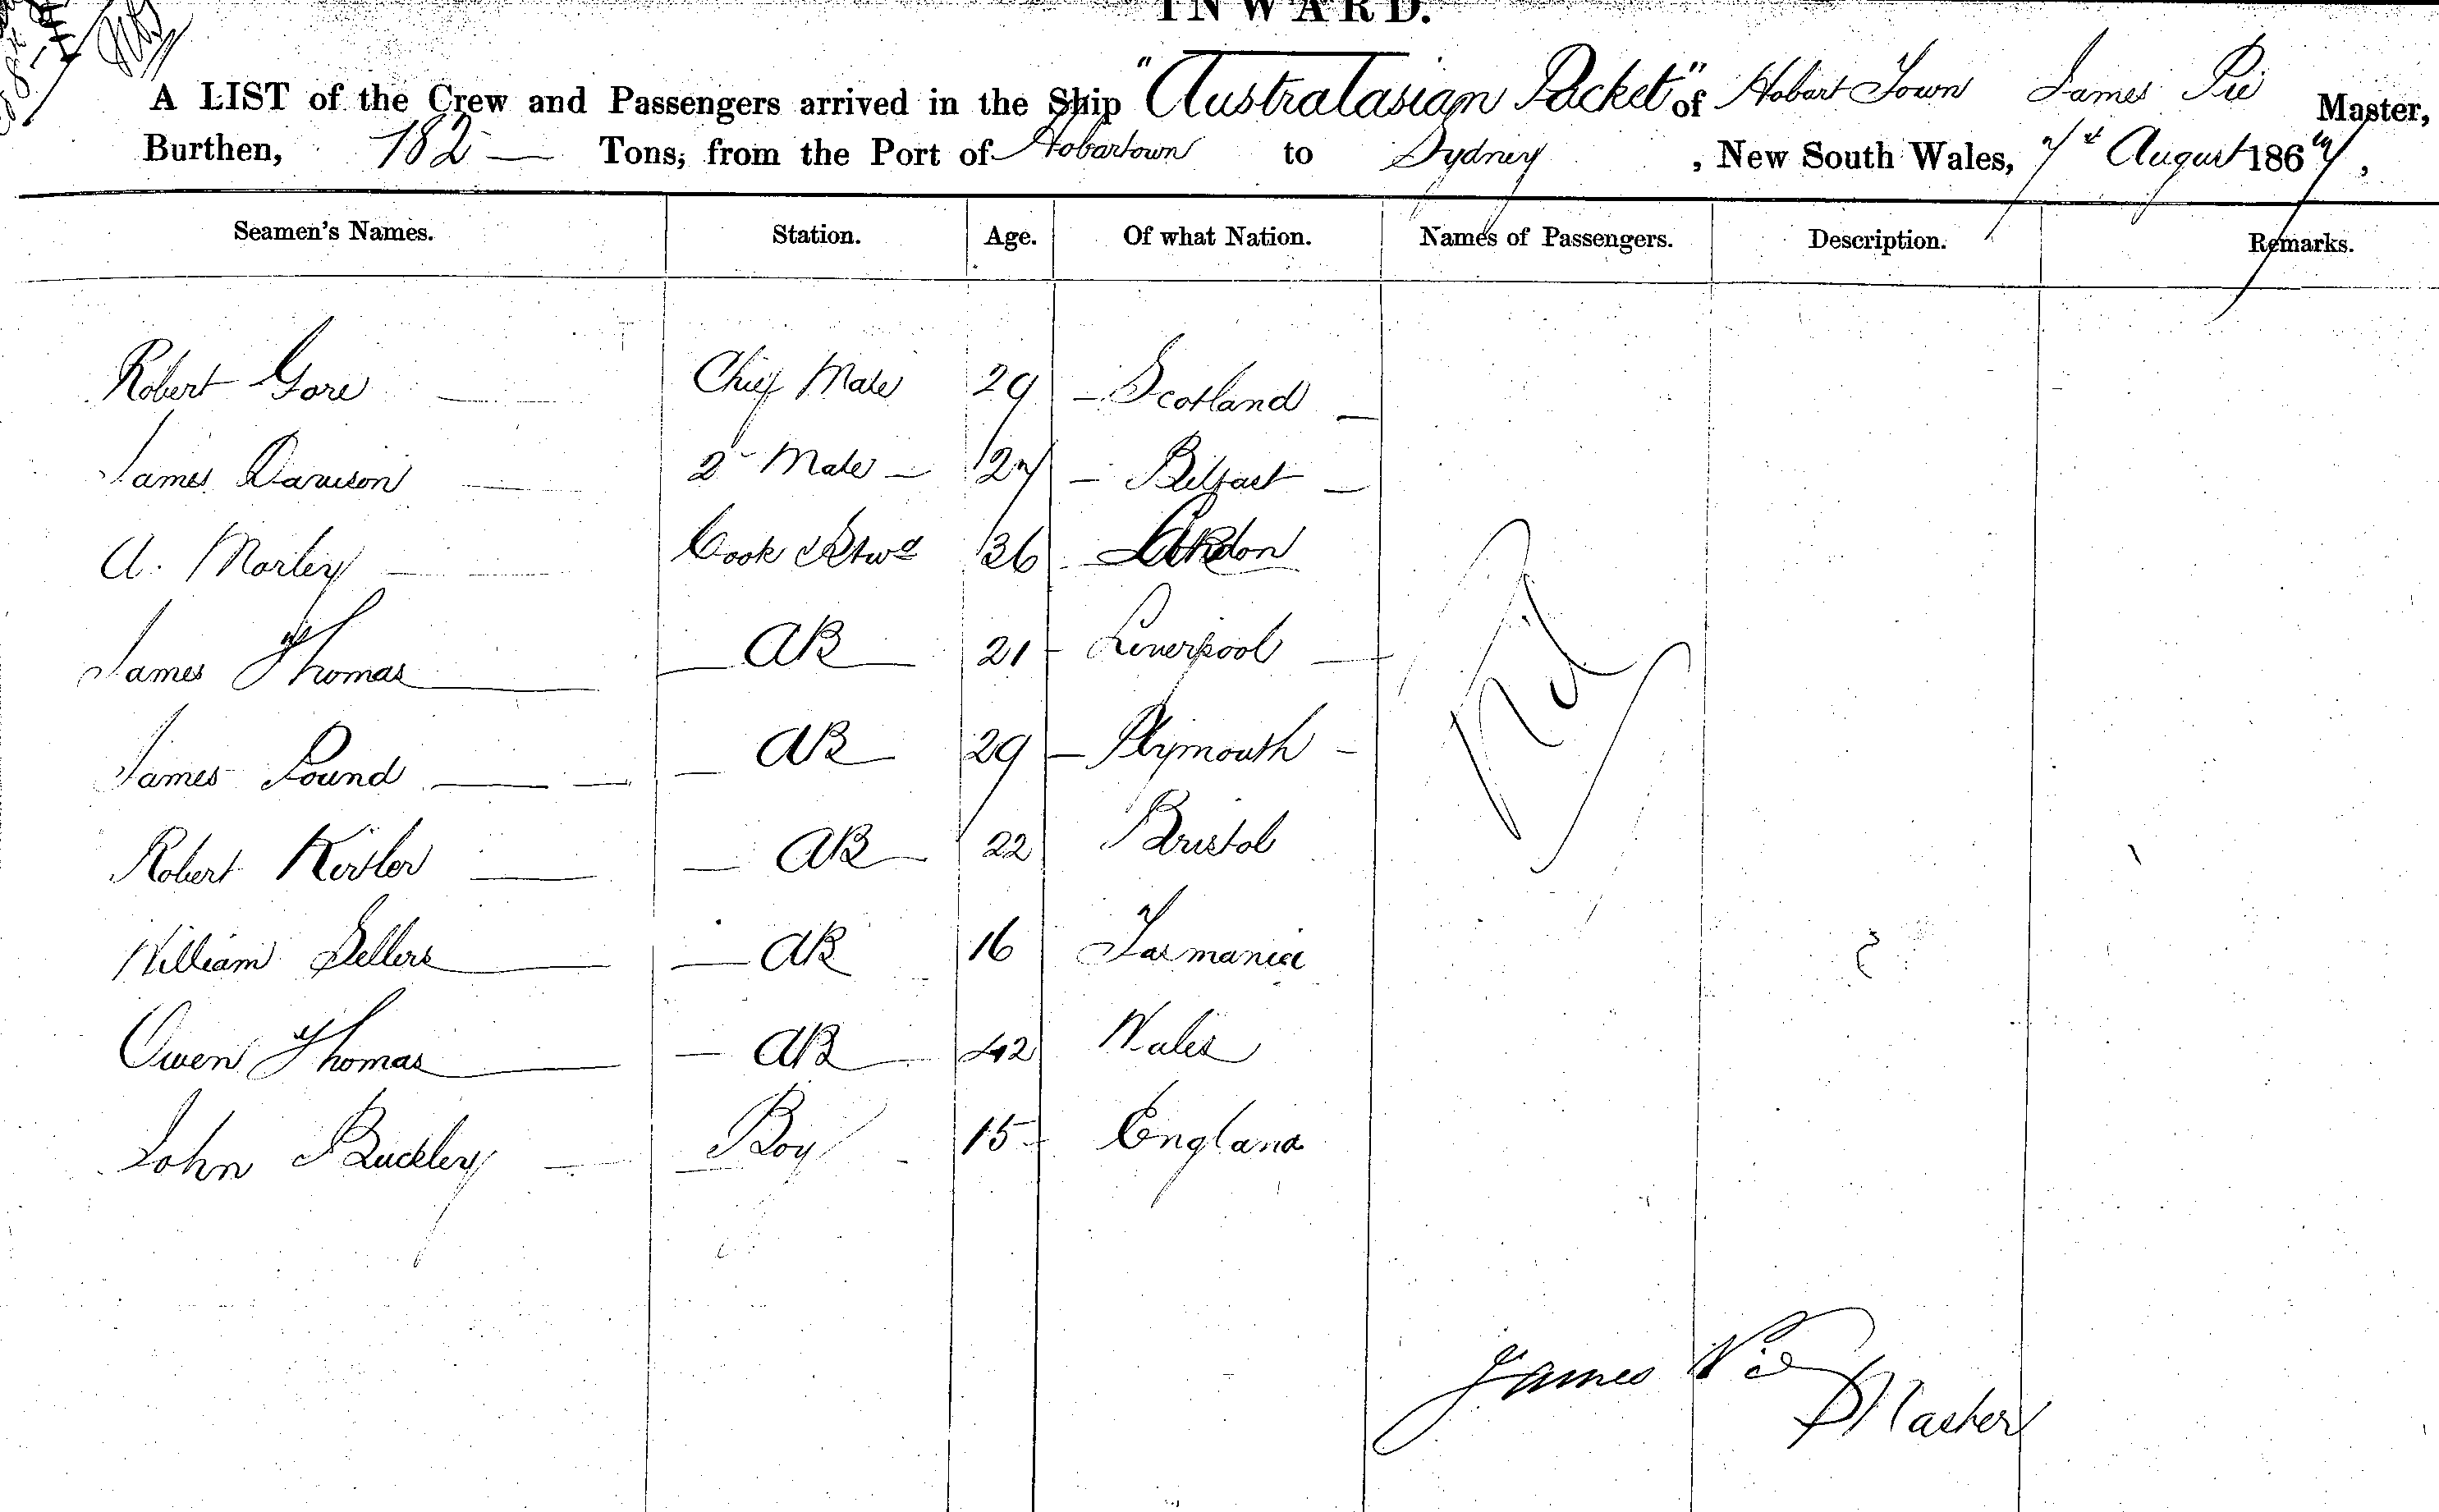 INWARD.
A LIST of the Crew and Passengers arrived in the Ship "Australasian Packet" of Hobart Town James Pie Master,
Burthen, 182 — Tons, from the Port of Hobartown to Sydney , New South Wales, 7th August 1867,
Seamen's Names. Station. Age. Of what Nation. Names of Passengers. Description. Remarks.
Robert Gore — Chief Mate 29 — Scotland —
James Davison — 2 Mate — 27 — Belfast —
A. Morley — Cook & Stwd 36 London
James Thomas — AB — 21 - Liverpool —
James Pound — — AB — 29 — Plymouth -
Robert — AB — 22 Bristol
William Sellers — AB 16 Tasmania
Owen Thomas — AB — 42 Wales
John Buckley — Boy - 15 - England
Nil
James Pie
Master